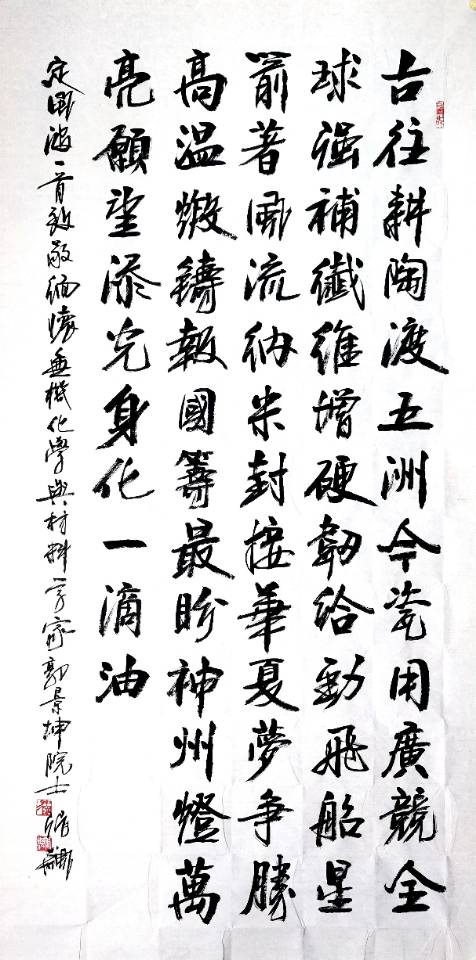 古往耕陶渡五洲今瓷用廣競全
球强補纖維增硬韌給勁飛船星
箭著風流納米封接華夏夢争勝
高温煅鑄報國籌最盼神州燈萬
亮願望添完身化一滴油
定風波一首致敬緬懷無機化學與材料學家郭景坤院士